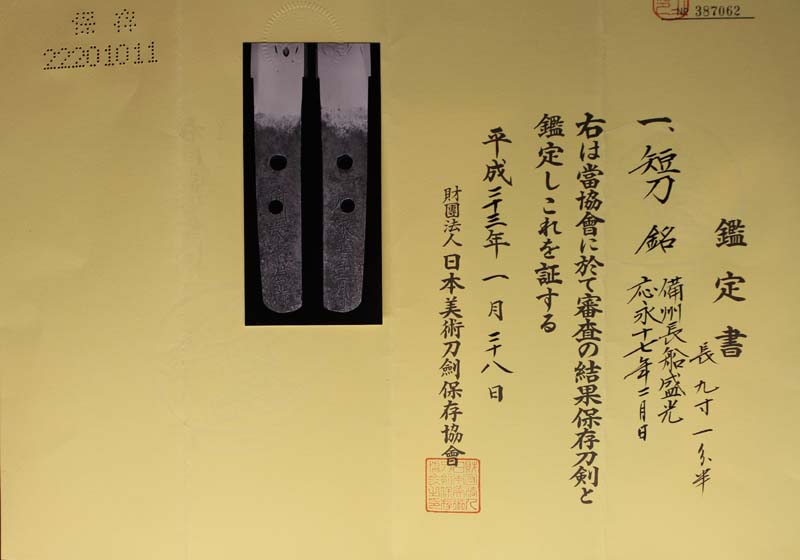 保存
22201011
№ 387062
鑑定書
一、短刀 銘 備州長船盛光
応永十七年二月日
長 九寸一分半
右は當協會に於て審査の結果保存刀剣と
鑑定しこれを証する
平成二十三年一月二十八日
財團法人 日本美術刀劍保存協會